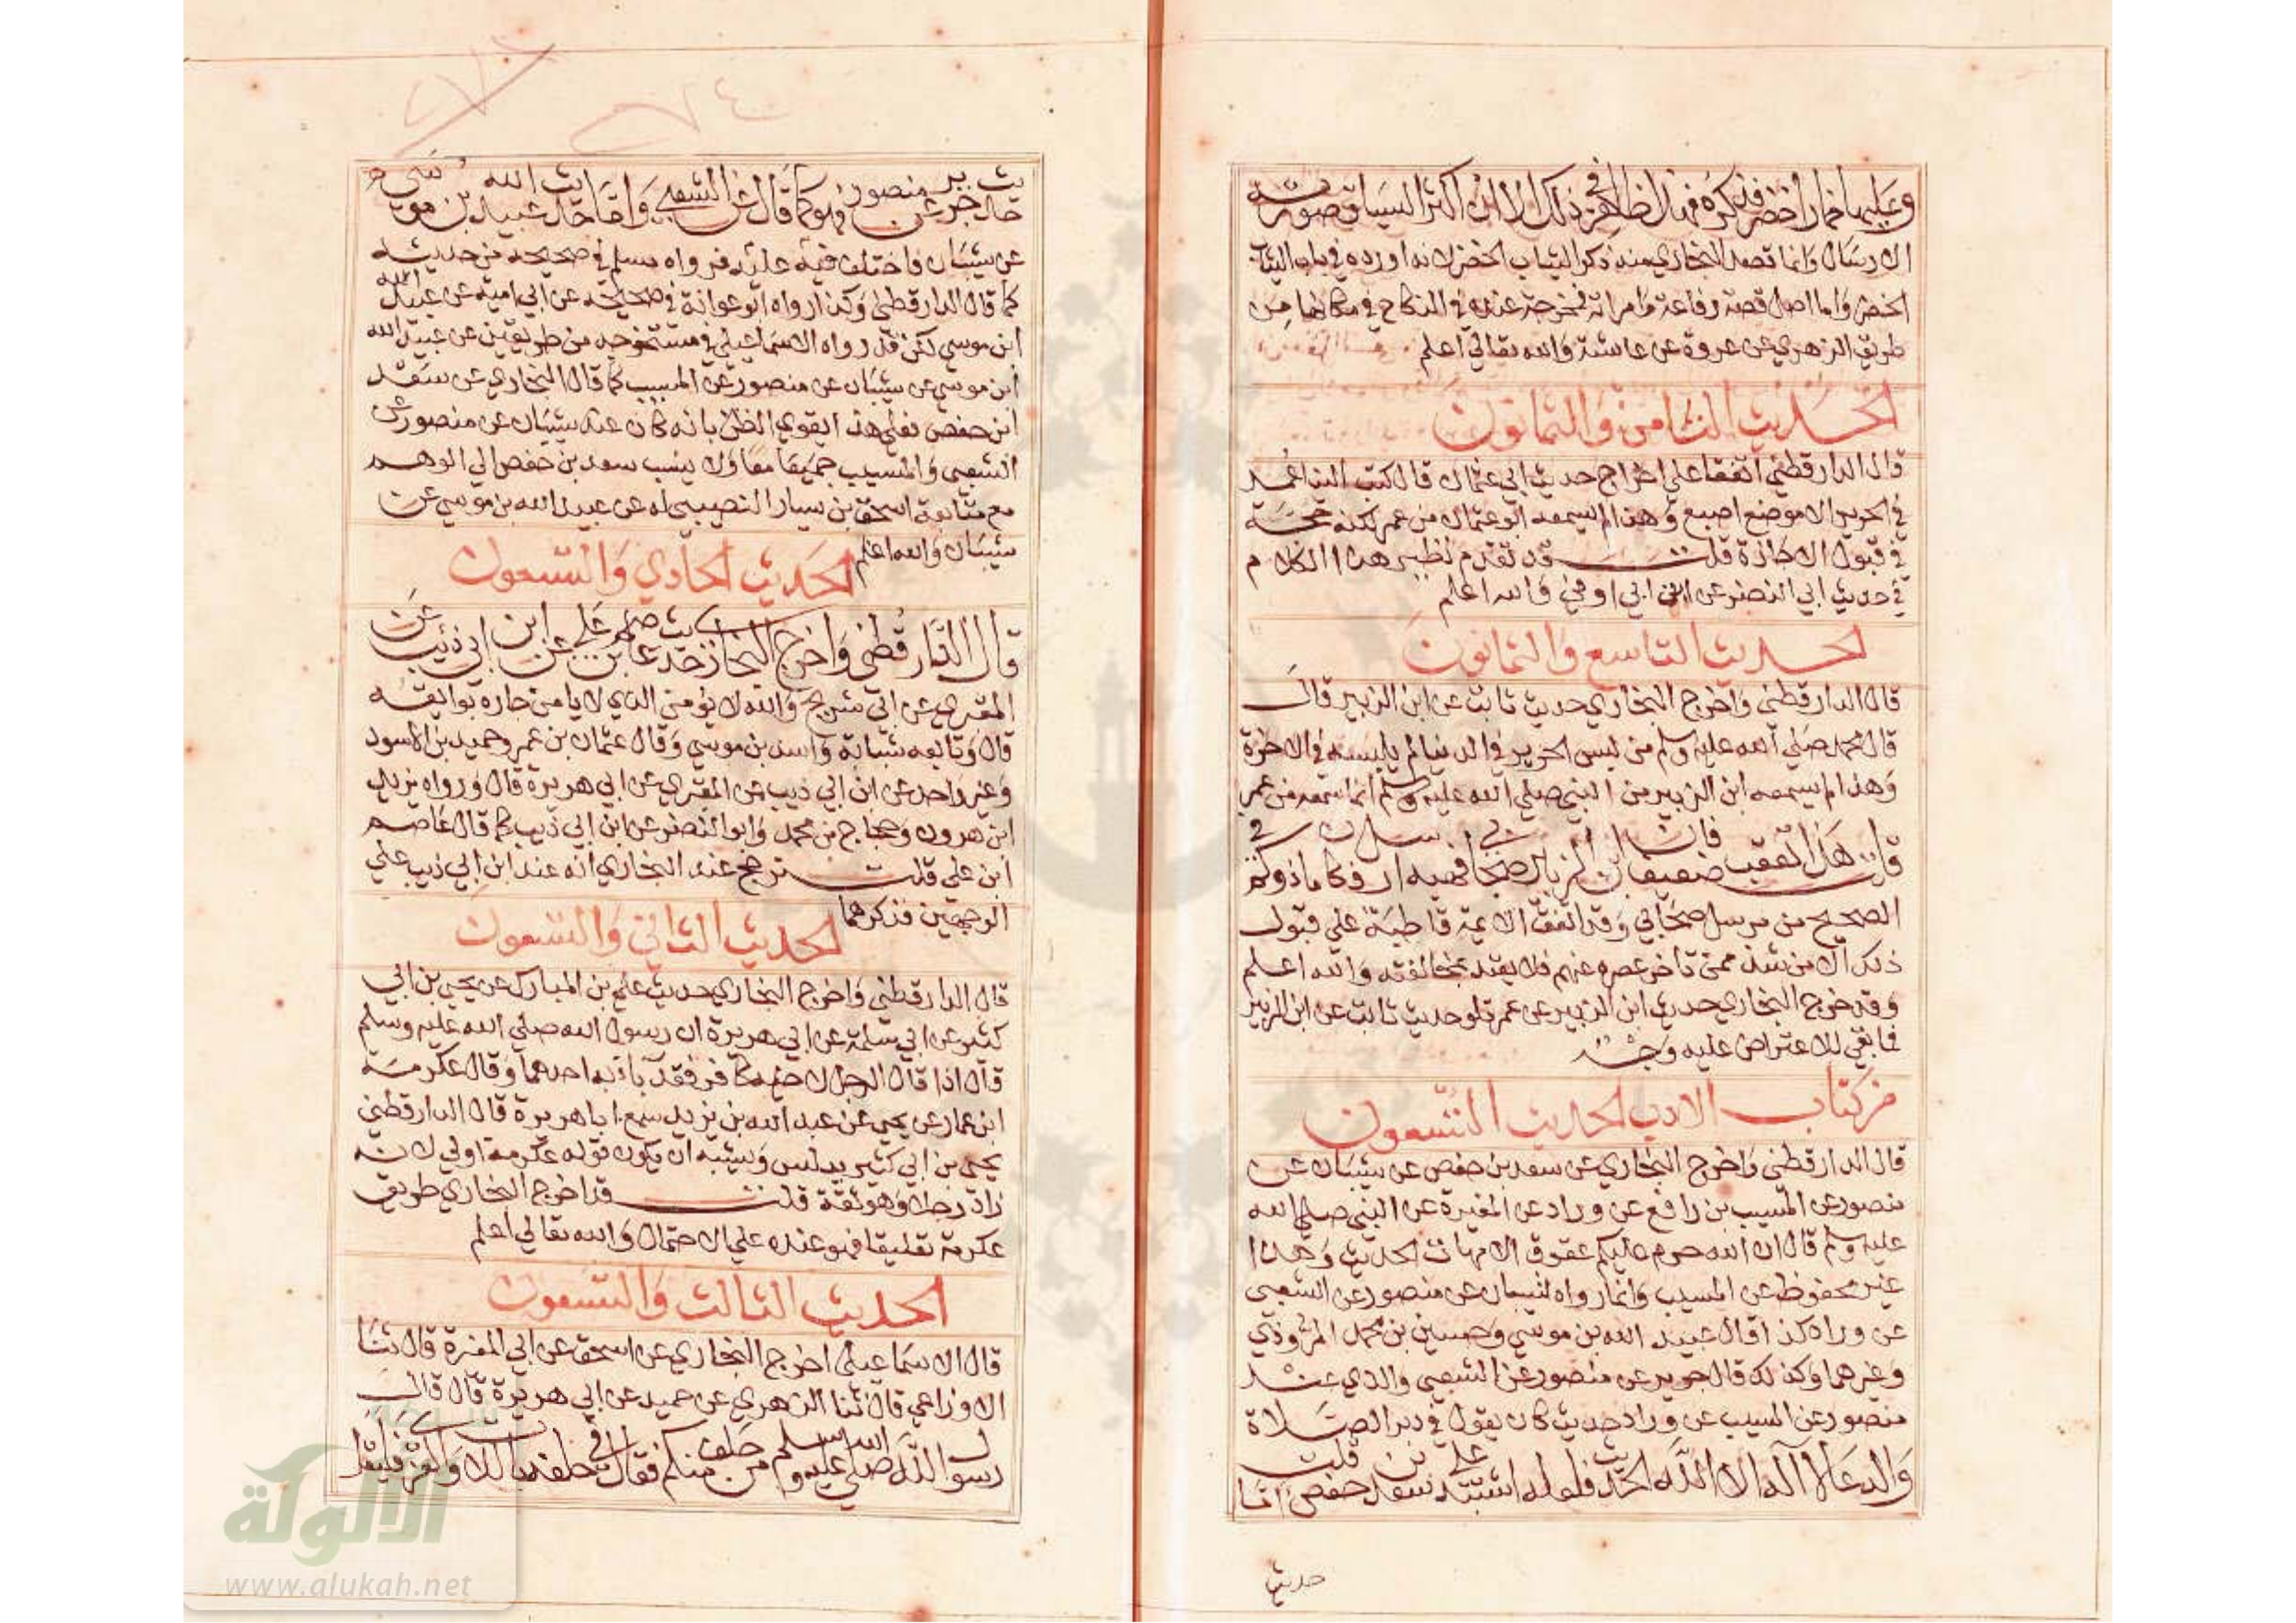 وعليها خمار اخضر فذكره فهذا الظاهر في ذلك الا ان اكثر السياق صورته
الارسال وانما قصد البخاري منه ذكر الثياب الخضر لانه اورده في باب الثياب
الخضر واما اصل قصة رفاعة وامراته فمخرجة عنده في النكاح في مكانها من
طريق الزهري عن عروة عن عائشة والله تعالي اعلم
الحديث الثامن والثمانون
قال الدارقطني اتفقا علي اخراج حديث ابي عثمان قال كتب الينا عمر
في الحرير الا موضع اصبع وهذا لم يسمعه ابو عثمان من عمر لكنه حجة
في قبول الاجازة قلت قد تقدم نظير هذا الكلام
في حديث ابي النضر عن ابن ابي اوفي والله اعلم
الحديث التاسع والثمانون
قال الدارقطني واخرج البخاري حديث ثابت عن ابن الزبير قال
قال محمد صلي الله عليه وسلم من لبس الحرير في الدنيا لم يلبسه في الاخرة
وهذا لم يسمعه ابن الزبير من النبي صلي الله عليه وسلم انما سمعه من عمر
قلت هذا تعقب ضعيف فان ابن الزبير صحابي فهبه ارسل فكان ماذا وكم في
الصحيح من مرسل صحابي وقد اتفق الائمة قاطبة علي قبول
ذلك الا من شذ ممن تاخر عصره عنهم فلا يعتد بمخالفته والله اعلم
وقد خرج البخاري حديث ابن الزبير عن عمر تلو حديث ثابت عن ابن الزبير
فما بقي للاعتراض عليه وجه
من كتاب الادب الحديث التسعون
قال الدارقطني واخرج البخاري عن سعد بن حفص عن شيبان عن
منصور عن المسيب بن رافع عن وراد عن المغيرة عن النبي صلي الله
عليه وسلم قال ان الله حرم عليكم عقوق الامهات الحديث وهذا
غير محفوظ عن المسيب وانما رواه شيبان عن منصور عن الشعبي
عن وراد كذا قال عبيد الله بن موسي وحسين بن محمد المروذي
وغيرهما وكذلك قال جرير عن منصور عن الشعبي والذي عند
منصور عن المسيب عن وراد حديث كان يقول في دبر الصلاة
والدعا لا اله الا الله الحديث فلو لم اشتبه علي سعد بن حفص قلت اما
حديث
حديث جرير عن منصور فهو كما قال عن الشعبي واما حديث عبيد الله بن موسي
عن شيبان فاختلف فيه عليه فرواه مسلم في صحيحه من حديثه
كما قال الدارقطني وكذا رواه ابو عوانة في صحيحه عن ابي امية عن عبيد الله
ابن موسي لكن قد رواه الاسماعيلي في مستخرجه من طريقين عن عبيد الله
ابن موسي عن شيبان عن منصور عن المسيب كما قال البخاري عن سعد
ابن حفص فعلي هذا يقوي الظن بانه كان عند شيبان عن منصور عن
الشعبي والمسيب جميعا معا ولا ينسب سعد بن حفص الي الوهم
مع متابعة اسحق بن سيار النصيبي له عن عبيد الله بن موسي عن
شيبان والله اعلم
الحديث الحادي والتسعون
قال الدارقطني واخرج البخاري حديث عاصم بن علي عن ابن ابي ذئب عن
المقبري عن ابي شريح والله لا يؤمن الذي لا يامن جاره بوائقه
قال وتابعه شبابة واسد بن موسي وقال عثمان بن عمر وحميد بن الاسود
وغير واحد عن ابن ابي ذيب عن المقبري عن ابي هريرة قال ورواه يزيد
ابن هرون وحجاج بن محمد وابو النضر عن ابن ابي ذيب كما قال عاصم
ابن علي قلت ترجح عند البخاري انه عند ابن ابي ذيب علي
الوجهين فذكرهما
الحديث الثاني والتسعون
قال الدارقطني واخرج البخاري حديث علي بن المبارك عن يحيي بن ابي
كثير عن ابي سلمة عن ابي هريرة ان رسول الله صلي الله عليه وسلم
قال اذا قال الرجل لاخيه كافر فقد باء به احدهما وقال عكرمة
ابن عمار عن يحيي عن عبد الله بن يزيد سمع ابا هريرة قال الدارقطني
يحيي بن ابي كثير يدلس ويشبه ان يكون قول عكرمة اولي لانه
زاد رجلا وهو ثقة قلت قد اخرج البخاري طريق
عكرمة تعليقا فهو عنده علي الاحتمال والله تعالي اعلم
الحديث الثالث والتسعون
قال الاسماعيلي اخرج البخاري عن اسحق عن ابي المغيرة قال ثنا
الاوزاعي قال ثنا الزهري عن حميد عن ابي هريرة قال قال
رسول الله صلي الله عليه وسلم من حلف منكم فقال في حلفه باللات والعزي فليقل
الألوكة
www.alukah.net